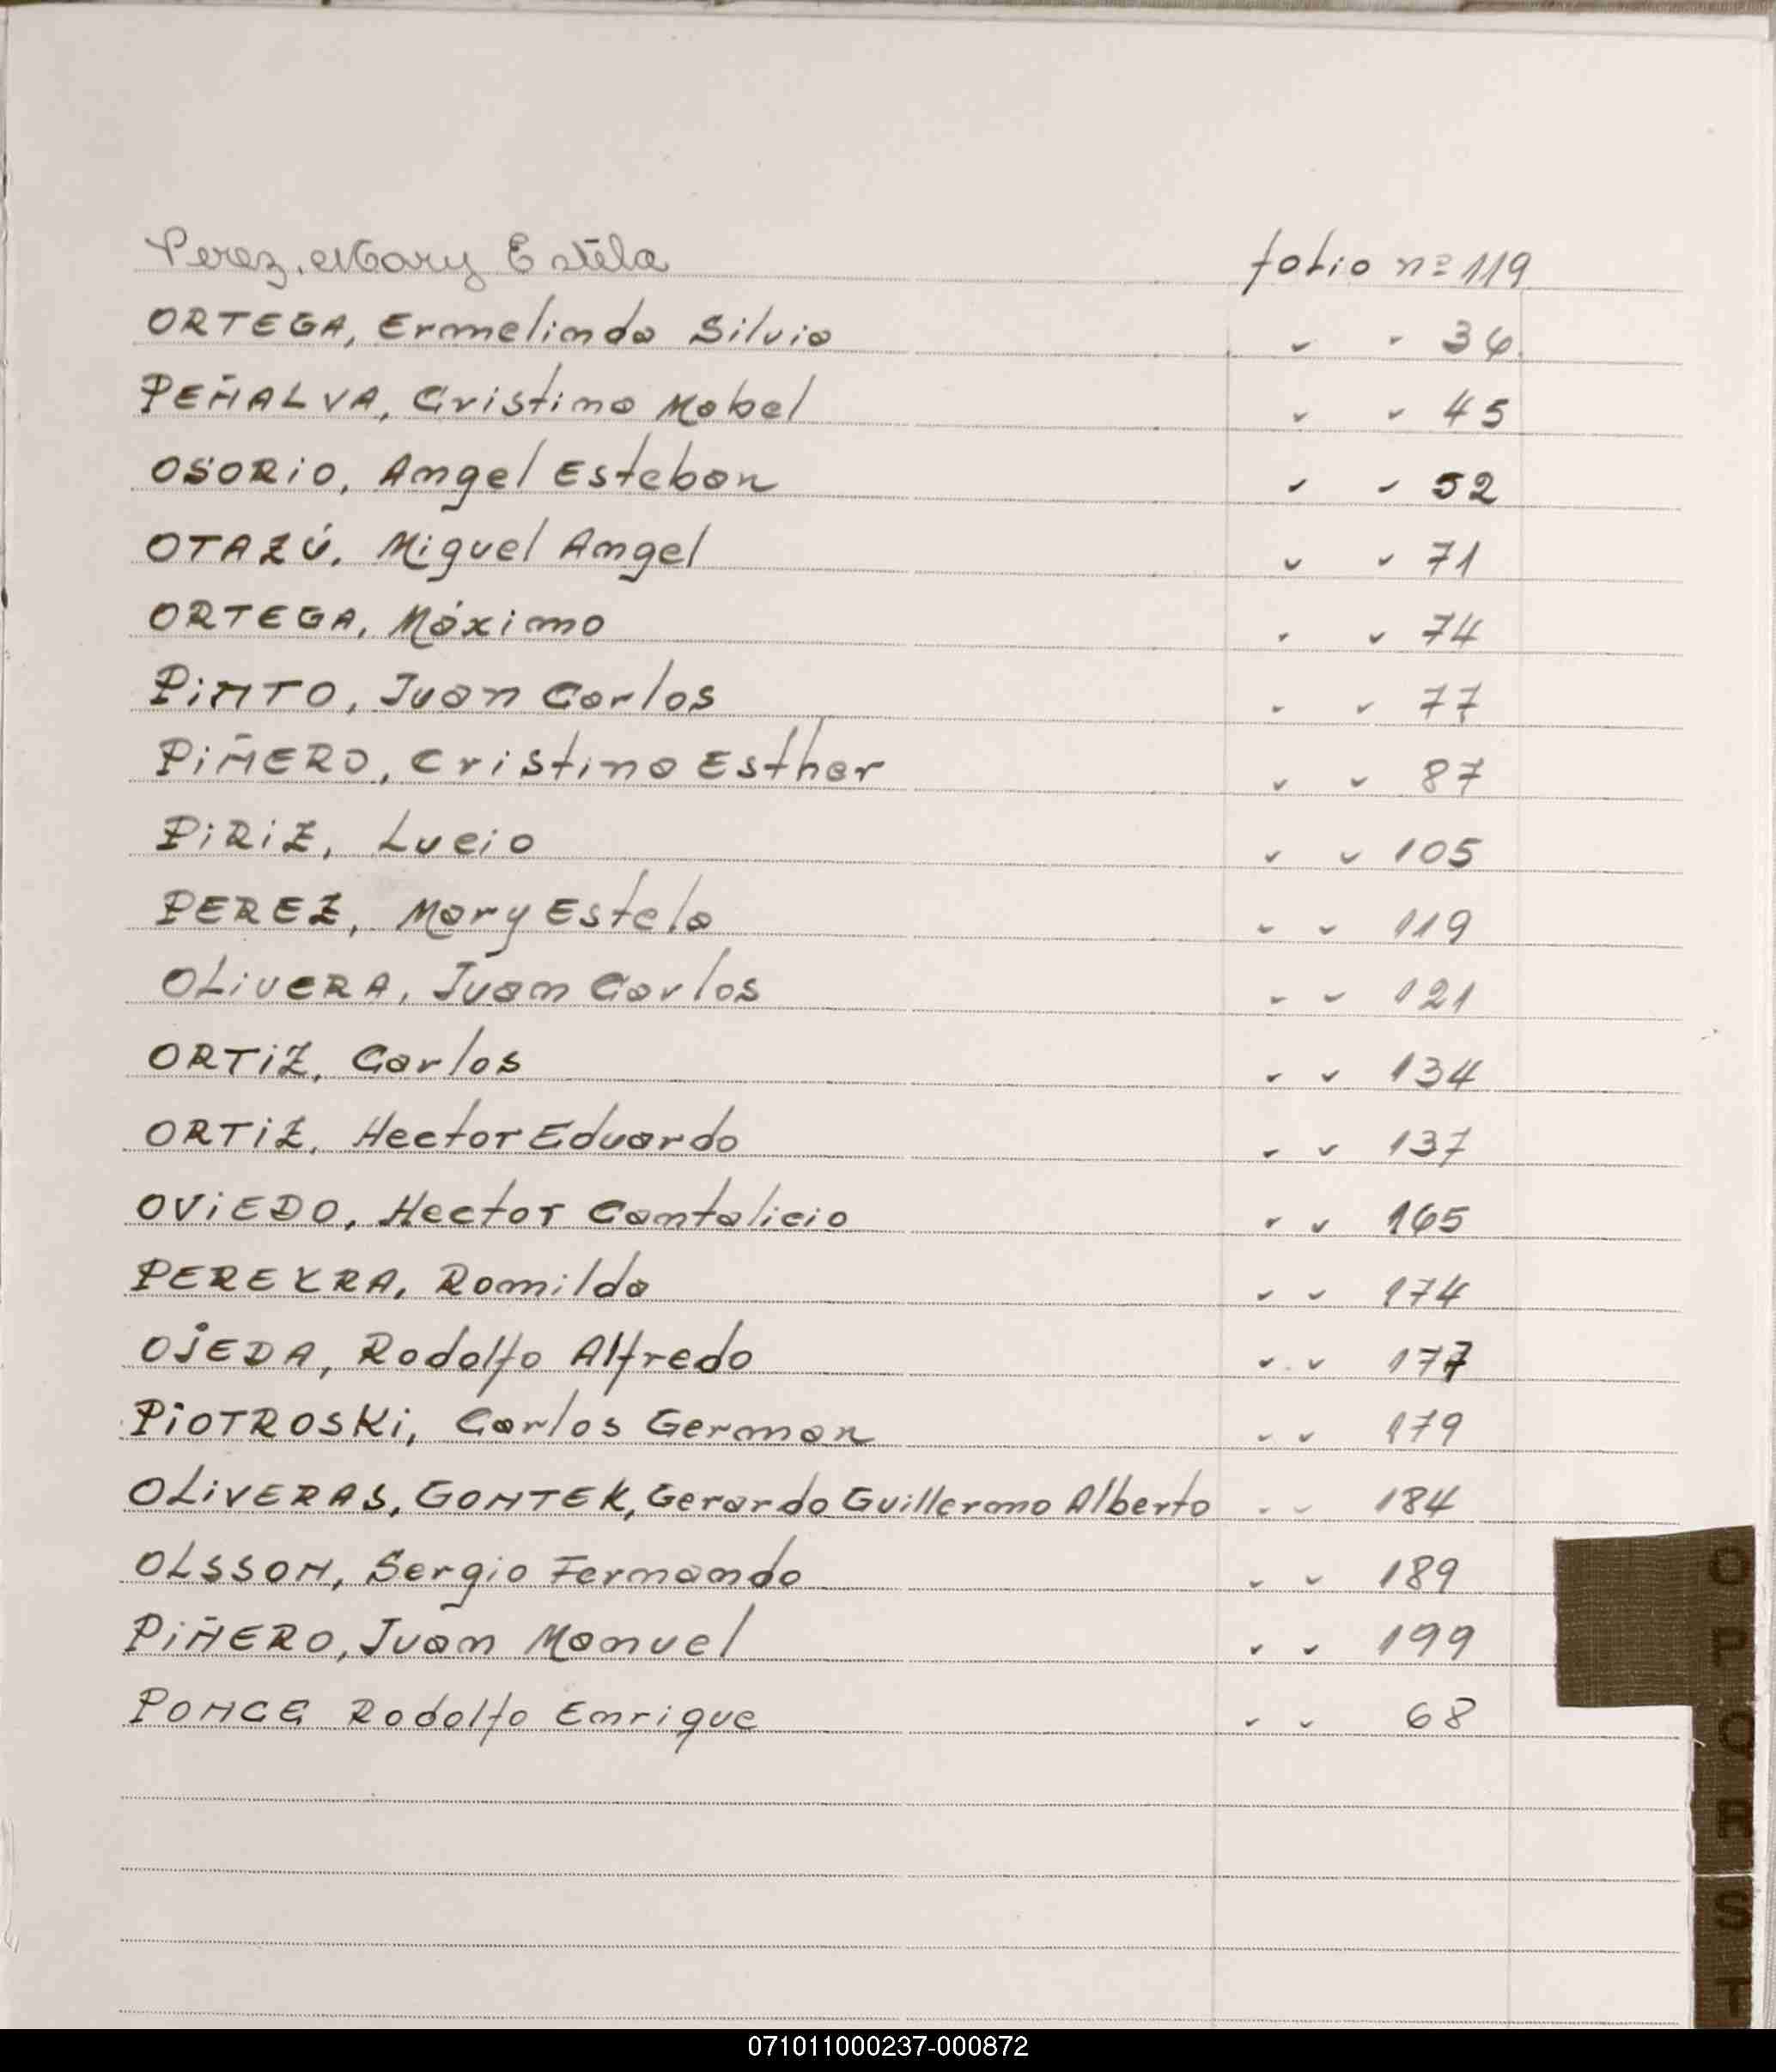 Perez, Mary Estela folio nº 119
ORTEGA, Ermelinda Silvia " " 36
PEÑALVA, Cristina Mabel " " 45
OSORIO, Angel Esteban " " 52
OTAZÚ, Miguel Angel " " 71
ORTEGA, Máximo " " 74
PiNTO, Juan Carlos " " 77
PiÑERO, Cristina Esther " " 87
PiRiZ, Lucio " " 105
PEREZ, Mary Estela " " 119
OLiVERA, Juan Carlos " " 121
ORTiZ, Carlos " " 134
ORTiZ, Hector Eduardo " " 137
OViEDO, Hector Cantalicio " " 165
PEREYRA, Romilda " " 174
OJEDA, Rodolfo Alfredo " " 177
PiOTROSKi, Carlos German " " 179
OLiVERAS, GONTEK, Gerardo Guillermo Alberto " " 184
OLSSON, Sergio Fernando " " 189
PiÑERO, Juan Manuel " " 199
PONCE Rodolfo Enrique " " 68
O
P
Q
R
S
T
071011000237-000872